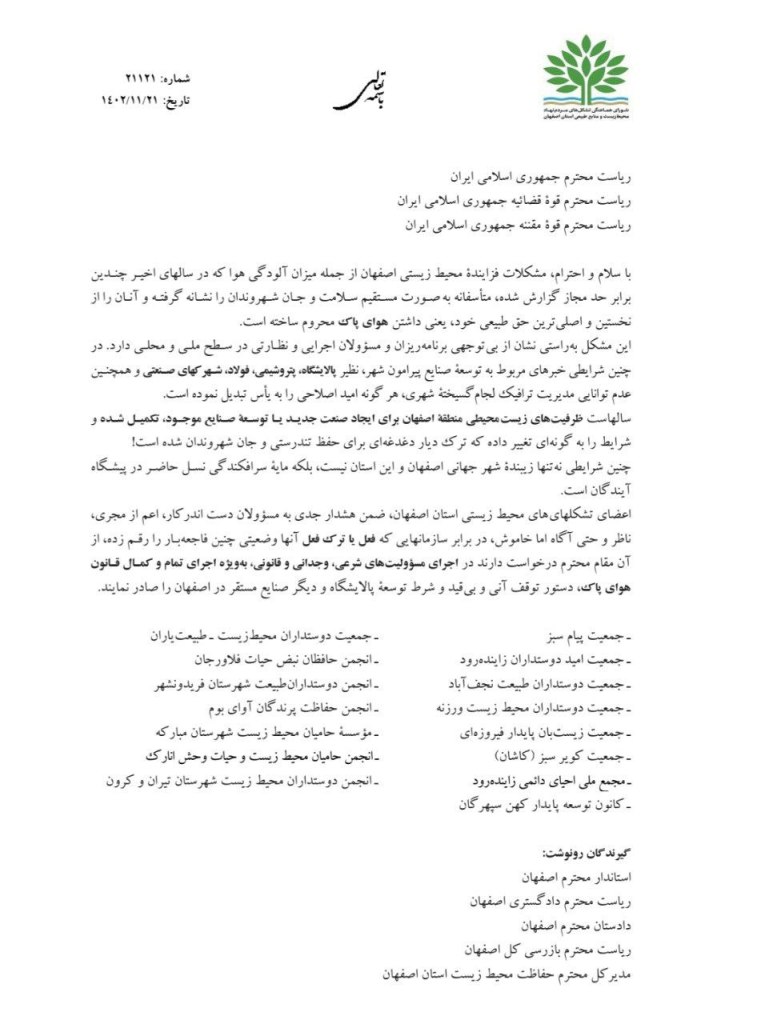 شماره: ۲۱۱۲۱
تاریخ: ۱٤۰۲/۱۱/۲۱
باسمه تعالی
شورای هماهنگی تشکل‌های مردم‌نهاد
محیط‌زیست و منابع طبیعی استان اصفهان
ریاست محترم جمهوری اسلامی ایران
ریاست محترم قوۀ قضائیه جمهوری اسلامی ایران
ریاست محترم قوۀ مقننه جمهوری اسلامی ایران
با سلام و احترام، مشکلات فزایندۀ محیط زیستی اصفهان از جمله میزان آلودگی هوا که در سالهای اخیر چندین
برابر حد مجاز گزارش شده، متأسفانه به صورت مستقیم سلامت و جان شهروندان را نشانه گرفته و آنان را از
نخستین و اصلی‌ترین حق طبیعی خود، یعنی داشتن هوای پاک محروم ساخته است.
این مشکل به‌راستی نشان از بی‌توجهی برنامه‌ریزان و مسؤولان اجرایی و نظارتی در سطح ملی و محلی دارد. در
چنین شرایطی خبرهای مربوط به توسعۀ صنایع پیرامون شهر، نظیر پالایشگاه، پتروشیمی، فولاد، شهرکهای صنعتی و همچنین
عدم توانایی مدیریت ترافیک لجام‌گسیختۀ شهری، هر گونه امید اصلاحی را به یأس تبدیل نموده است.
سالهاست ظرفیت‌های زیست‌محیطی منطقۀ اصفهان برای ایجاد صنعت جدید یا توسعۀ صنایع موجود، تکمیل شده و
شرایط را به گونه‌ای تغییر داده که ترک دیار دغدغه‌ای برای حفظ تندرستی و جان شهروندان شده است!
چنین شرایطی نه‌تنها زیبندۀ شهر جهانی اصفهان و این استان نیست، بلکه مایۀ سرافکندگی نسل حاضر در پیشگاه
آیندگان است.
اعضای تشکلهای‌های محیط زیستی استان اصفهان، ضمن هشدار جدی به مسؤولان دست اندرکار، اعم از مجری،
ناظر و حتی آگاه اما خاموش، در برابر سازمانهایی که فعل یا ترک فعل آنها وضعیتی چنین فاجعه‌بار را رقم زده، از
آن مقام محترم درخواست دارند در اجرای مسؤولیت‌های شرعی، وجدانی و قانونی، به‌ویژه اجرای تمام و کمال قانون
هوای پاک، دستور توقف آنی و بی‌قید و شرط توسعۀ پالایشگاه و دیگر صنایع مستقر در اصفهان را صادر نمایند.
ـ جمعیت پیام سبز
ـ جمعیت امید دوستداران زاینده‌رود
ـ جمعیت دوستداران طبیعت نجف‌آباد
ـ جمعیت دوستداران محیط زیست ورزنه
ـ جمعیت زیست‌بان پایدار فیروزه‌ای
ـ جمعیت کویر سبز (کاشان)
ـ مجمع ملی احیای دائمی زاینده‌رود
ـ کانون توسعه پایدار کهن سپهرگان
ـ جمعیت دوستداران محیط‌زیست ـ طبیعت‌یاران
ـ انجمن حافظان نبض حیات فلاورجان
ـ انجمن دوستداران‌طبیعت شهرستان فریدونشهر
ـ انجمن حفاظت پرندگان آوای بوم
ـ مؤسسۀ حامیان محیط زیست شهرستان مبارکه
ـ انجمن حامیان محیط زیست و حیات وحش انارک
ـ انجمن دوستداران محیط زیست شهرستان تیران و کرون
گیرندگان رونوشت:
استاندار محترم اصفهان
ریاست محترم دادگستری اصفهان
دادستان محترم اصفهان
ریاست محترم بازرسی کل اصفهان
مدیرکل محترم حفاظت محیط زیست استان اصفهان